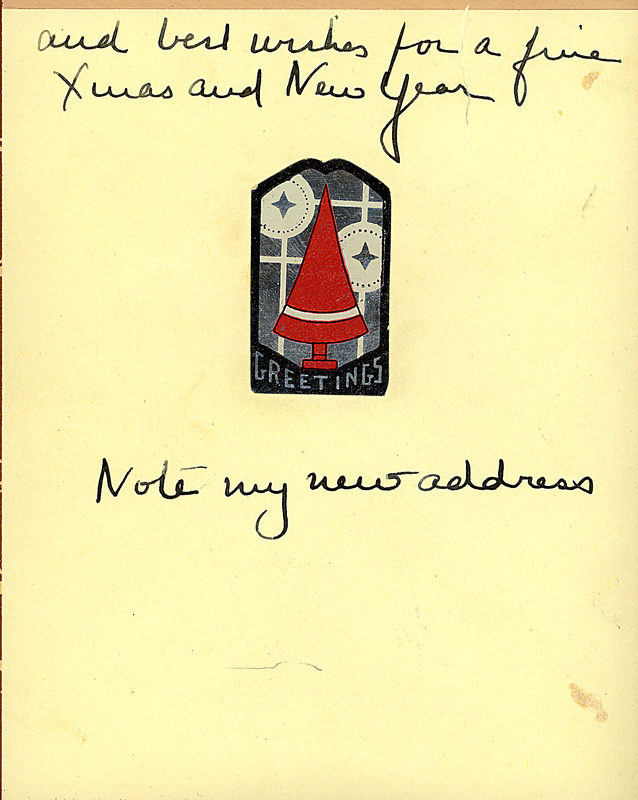 and best wishes for a fine
Xmas and New Year
GREETINGS
Note my new address